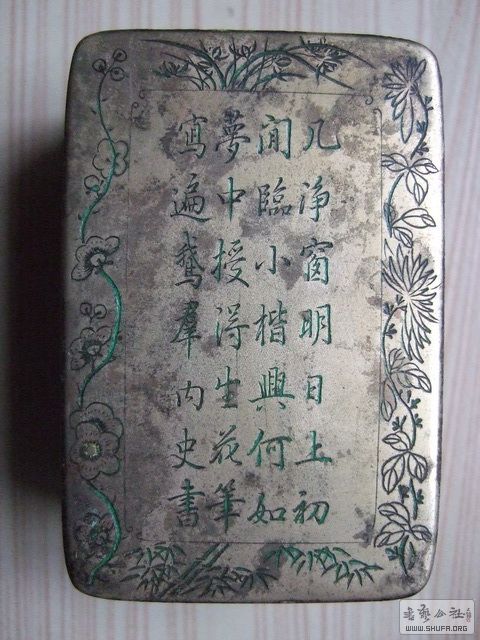 几净窗明日上初
閒臨小楷興何如
夢中授得生花筆
寫遍鵞羣内史書
书艺公社
WWW.SHUFA.ORG